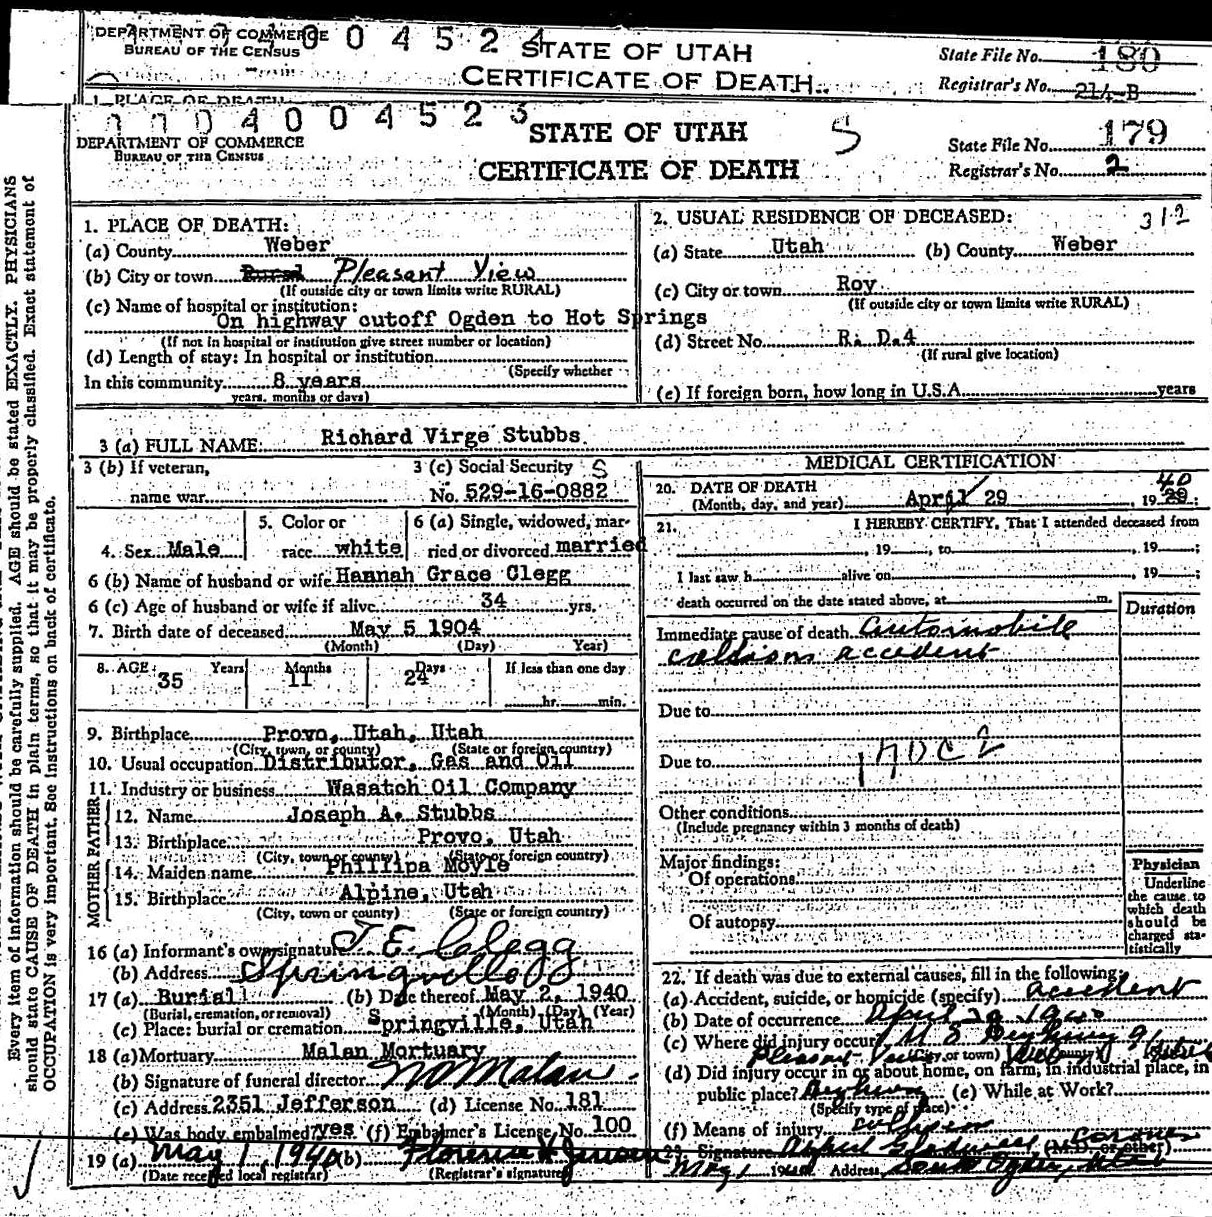 DEPARTMENT OF COMMERCE
BUREAU OF THE CENSUS
0 0 4 5 2 4
STATE OF UTAH
CERTIFICATE OF DEATH
State File No. 180
Registrar's No. 214-B
1. PLACE OF DEATH:
0 4 0 0 0 4 5 2 3
DEPARTMENT OF COMMERCE
BUREAU OF THE CENSUS
STATE OF UTAH
CERTIFICATE OF DEATH
S
State File No. 179
Registrar's No. 2
Every item of information should be carefully supplied. AGE should be stated EXACTLY. PHYSICIANS
should state CAUSE OF DEATH in plain terms, so that it may be properly classified. Exact statement of
OCCUPATION is very important. See instructions on back of certificate.
1. PLACE OF DEATH:
(a) County Weber
(b) City or town Rural Pleasant View
(If outside city or town limits write RURAL)
(c) Name of hospital or institution:
On highway cutoff Ogden to Hot Springs
(If not in hospital or institution give street number or location)
(d) Length of stay: In hospital or institution
(Specify whether
In this community 8 years
years, months or days)
2. USUAL RESIDENCE OF DECEASED: 312
(a) State Utah (b) County Weber
(c) City or town Roy
(If outside city or town limits write RURAL)
(d) Street No. R. D.4
(If rural give location)
(e) If foreign born, how long in U.S.A. years
3 (a) FULL NAME: Richard Virge Stubbs
3 (b) If veteran,
name war
3 (c) Social Security S
No. 529-16-0882
4. Sex Male
5. Color or
race white
6 (a) Single, widowed, mar-
ried or divorced married
6 (b) Name of husband or wife Hannah Grace Clegg
6 (c) Age of husband or wife if alive 34 yrs.
7. Birth date of deceased May 5 1904
(Month) (Day) Year)
8. AGE: Years Months Days If less than one day
35 11 24
hr. min.
9. Birthplace Provo, Utah, Utah
(City, town, or county) (State or foreign country)
10. Usual occupation Distributor, Gas and Oil
11. Industry or business Wasatch Oil Company
FATHER
12. Name Joseph A. Stubbs
13. Birthplace Provo, Utah
(City, town or county) (State or foreign country)
MOTHER
14. Maiden name Phillipa Moyle
15. Birthplace Alpine, Utah
(City, town or county) (State or foreign country)
16 (a) Informant's own signature J. E. Clegg
(b) Address Springville
17 (a) Burial (b) Date thereof May 2, 1940
(Burial, cremation, or removal) (Month) (Day) (Year)
(c) Place: burial or cremation Springville, Utah
18 (a) Mortuary Malan Mortuary
(b) Signature of funeral director Malan
(c) Address 2351 Jefferson (d) License No. 181
(e) Was body embalmed? yes (f) Embalmer's License No. 100
19 (a) May 1, 1940 (b) Florence H Jensen
(Date received local registrar) (Registrar's signature)
MEDICAL CERTIFICATION
20. DATE OF DEATH
(Month, day, and year) April 29 1929 40
21. I HEREBY CERTIFY, That I attended deceased from
, 19 , to , 19 ;
I last saw h alive on , 19 ;
death occurred on the date stated above, at m.
Duration
Immediate cause of death automobile
collision accident
Due to
Due to 170C2
Other conditions
(Include pregnancy within 3 months of death)
Major findings:
Of operations
Of autopsy
Physician
Underline
the cause to
which death
should be
charged sta-
tistically
22. If death was due to external causes, fill in the following:
(a) Accident, suicide, or homicide (specify) accident
(b) Date of occurrence April 29 1940
(c) Where did injury occur? U S Highway 91
Pleasant View (City, or town) (County) (State)
(d) Did injury occur in or about home, on farm, in industrial place, in
public place? Highway (e) While at Work?
(Specify type of place)
(f) Means of injury
23. Signature Coroner
(M.D. or other)
May 1 1940 Address South Ogden, Utah